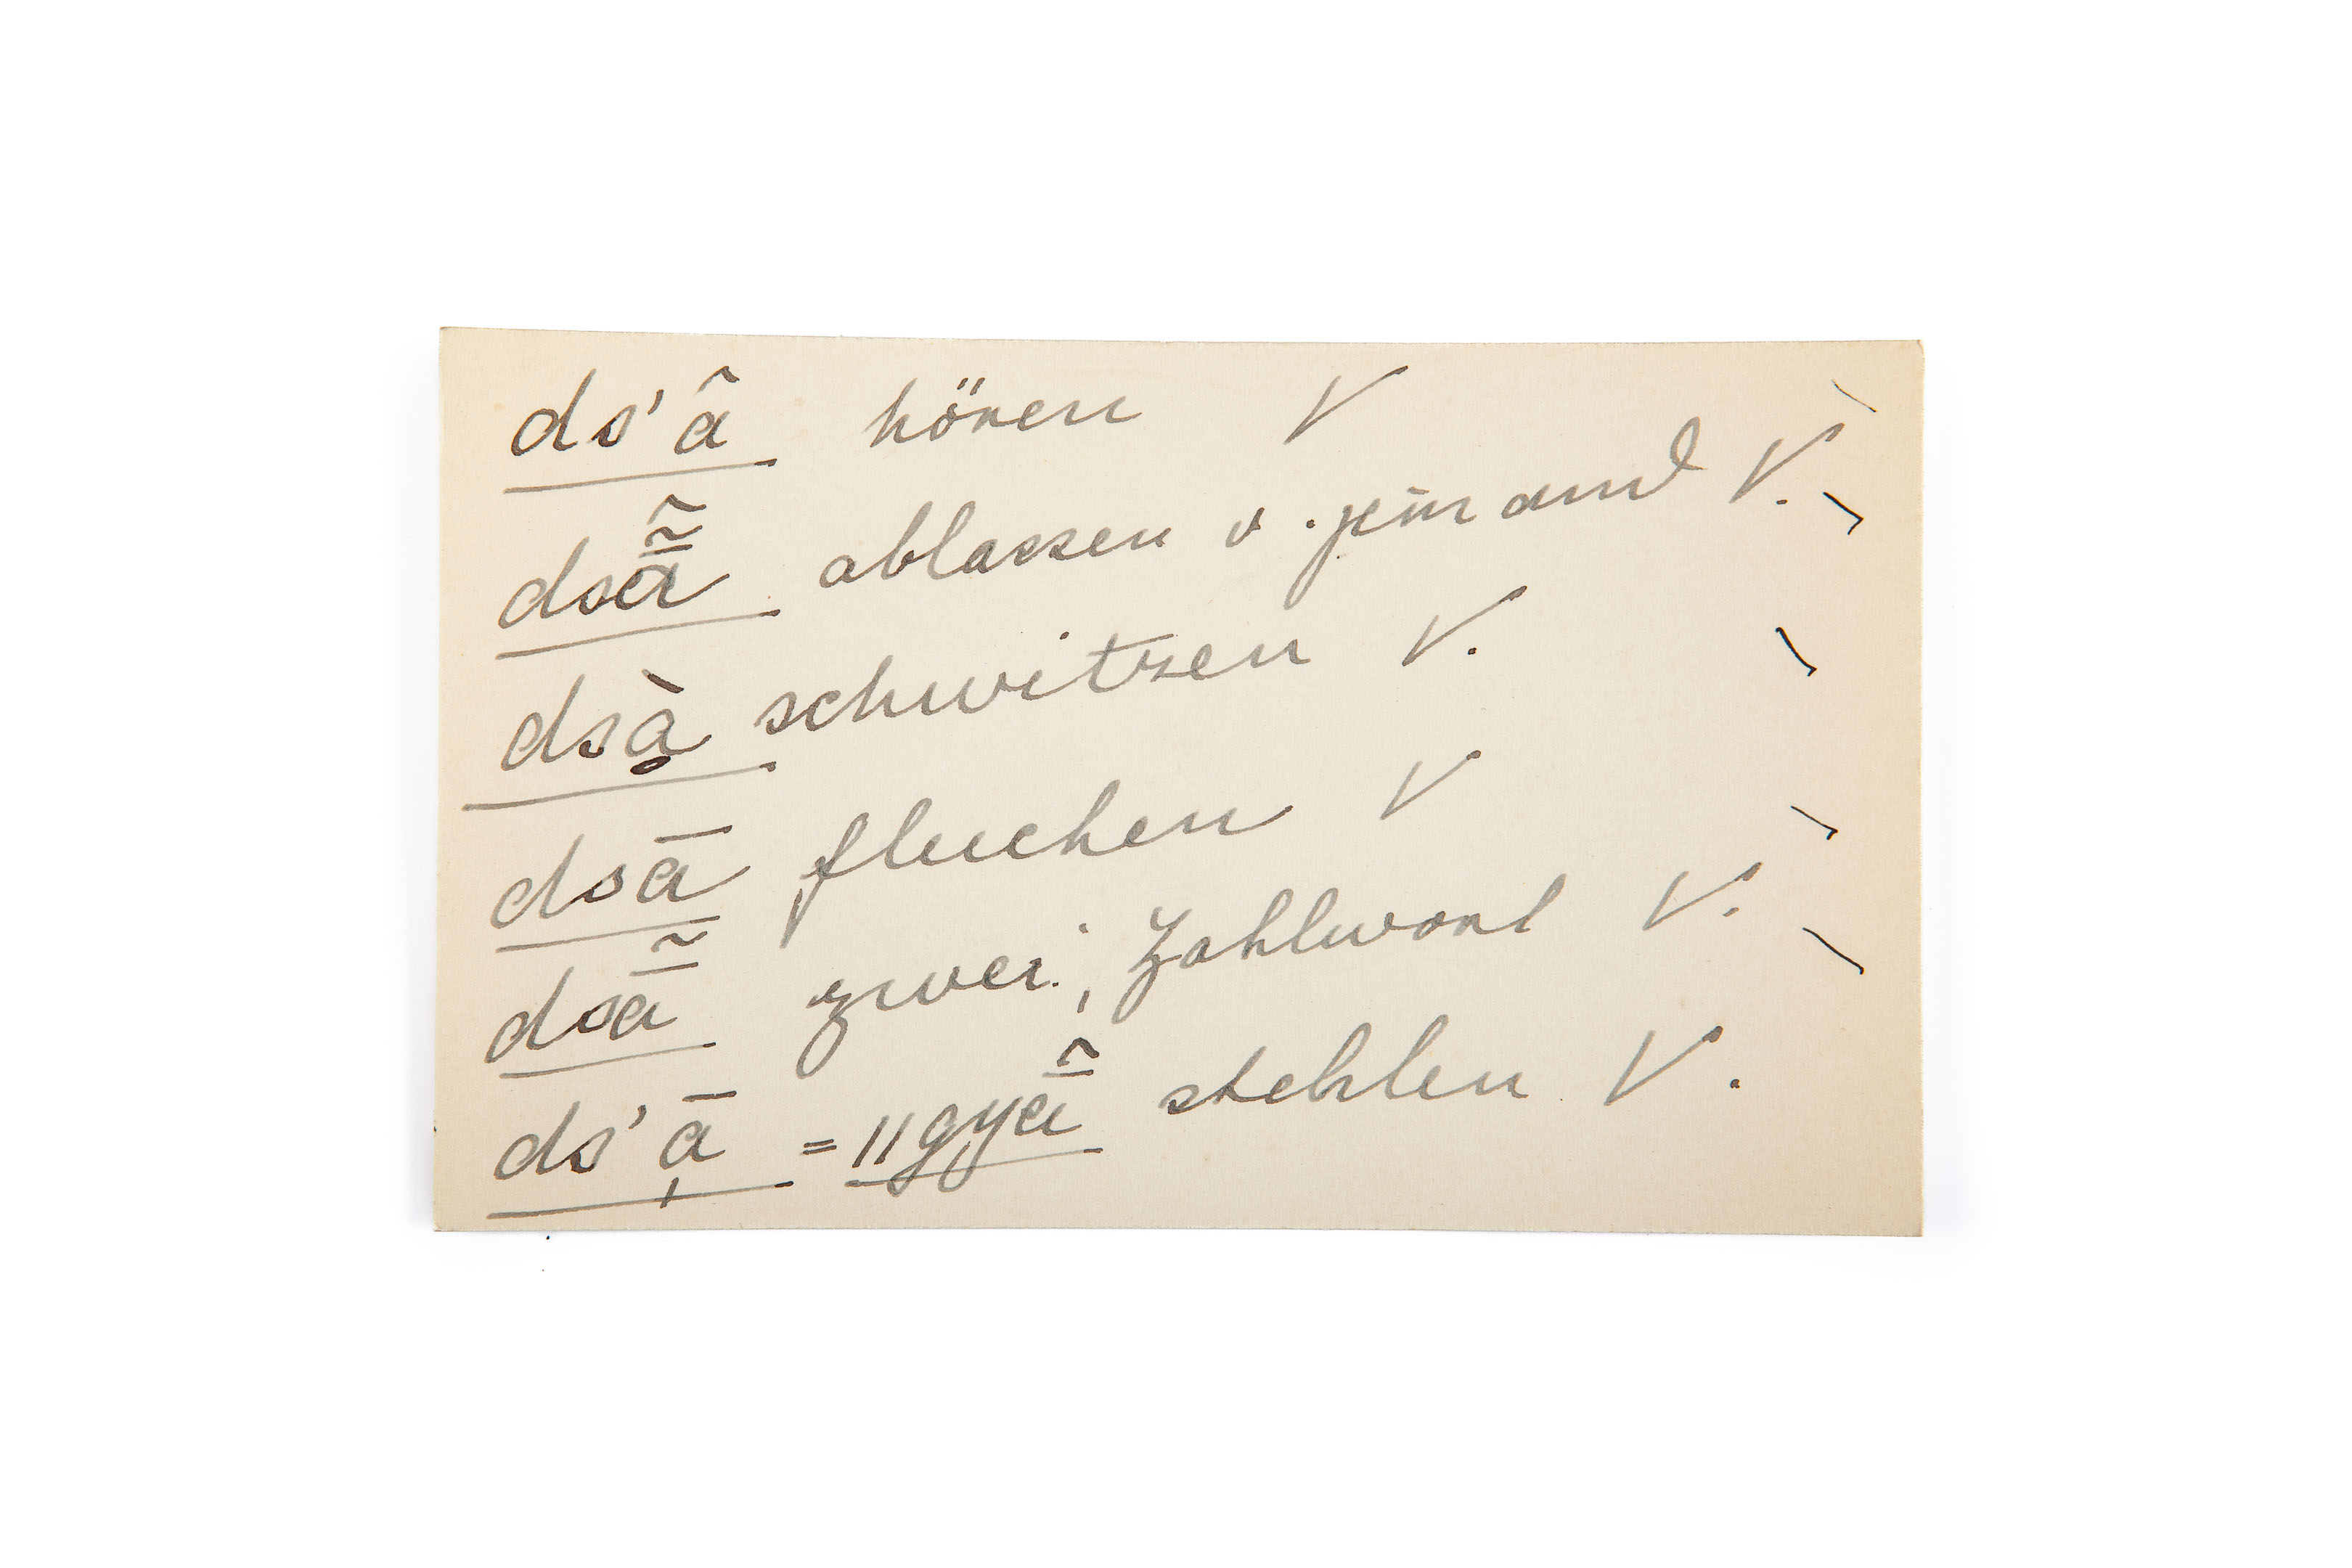 ds'â hören V
dsā̃̂ ablassen v. jemand V.
dsḁ̀ schwitzen V.
dsā fluchen V
dsā̃ zwei, Zahlwort V.
ds'ā̩ = ǁgyā̃̂ stehlen V.